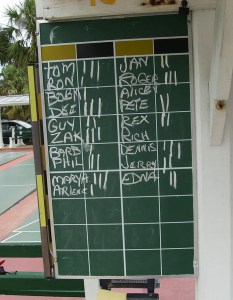 TOM JAN
RON ROGER
BOEM ALICE
DEE PETE
GUY REX
ZAK RICH
BARB DENNIS
PHIL JERRY
MARYA EDNA
ARLENE